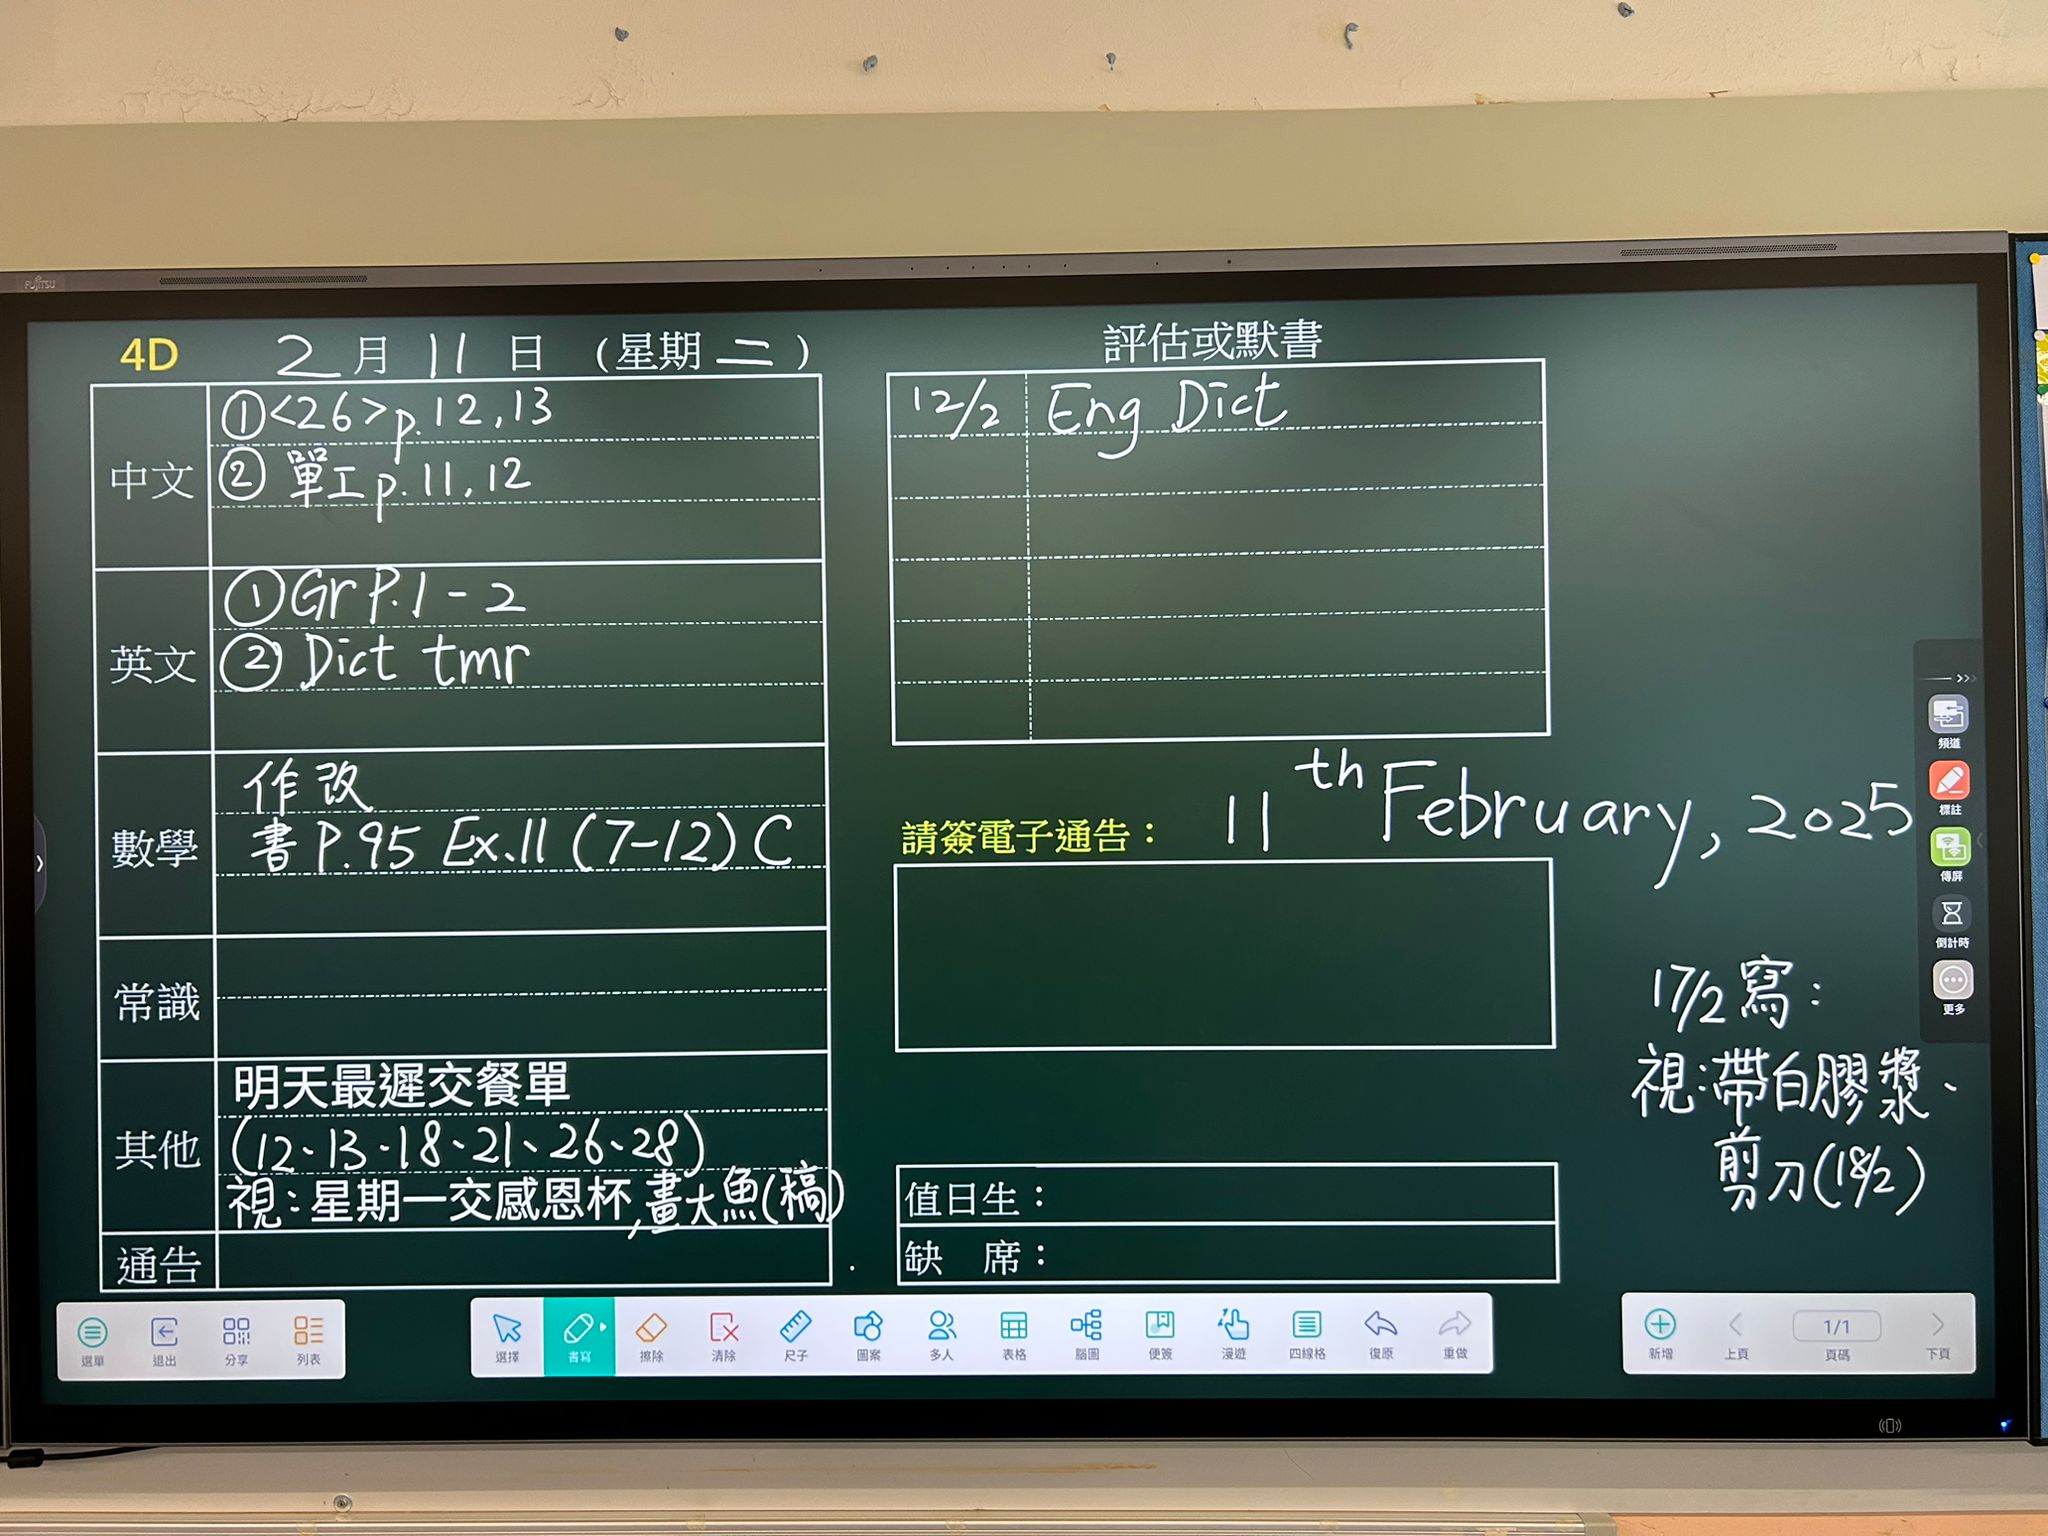 FUJITSU
4D 2月11日 (星期二)
中文
①<26>p.12,13
②單工p.11,12
英文
①Gr P.1-2
②Dict tmr
數學
作改
書P.95 Ex.11 (7-12) C
常識
其他
明天最遲交餐單
(12、13、18、21、26、28)
視：星期一交感恩杯,畫大魚(稿)
通告
評估或默書
12/2 Eng Dict
請簽電子通告： 11th February, 2025
值日生：
缺 席：
17/2寫：
視：帶白膠漿、
剪刀(18/2)
頻道
標註
傳屏
倒計時
更多
選單 退出 分享 列表
選擇 書寫 擦除 清除 尺子 圖案 多人 表格 腦圖 便簽 漫遊 四線格 復原 重做
1/1
新增 上頁 頁碼 下頁